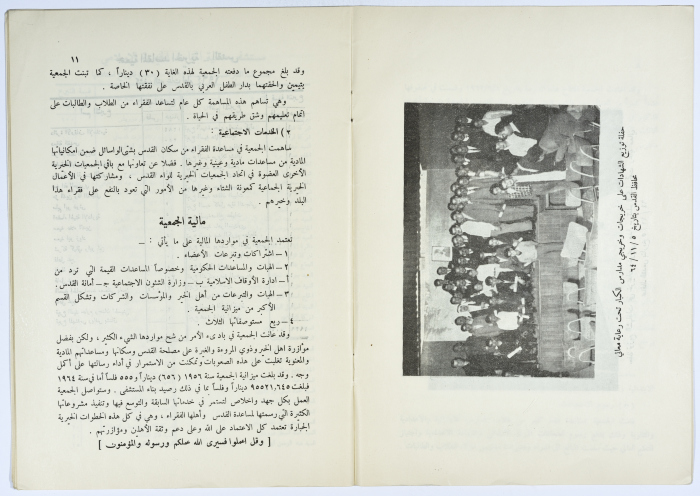 ١١
وقد بلغ مجموع ما دفعته الجمعية لهذه الغاية (٣٠) ديناراً ، كما تبنت الجمعية
يتيمين والحقتهما بدار الطفل العربي بالقدس على نفقتها الخاصة .
وهي تساهم هذه المساهمة كل عام لتساعد الفقراء من الطلاب والطالبات على
اتمام تعليمهم وشق طريقهم في الحياة .
٢) الخدمات الاجتماعية :
ساهمت الجمعية في مساعدة الفقراء من سكان القدس بشتى الوسائل ضمن امكانياتها
المادية من مساعدات مادية وعينية وغيرها . فضلا عن تعاونها مع باقي الجمعيات الخيرية
الأخرى العضوة في اتحاد الجمعيات الخيرية للواء القدس ، ومشاركتها في الأعمال
الخيرية الجماعية كمعونة الشتاء وغيرها من الأمور التي تعود بالنفع على فقراء هذا
البلد وخيرهم .
مالية الجمعية
تعتمد الجمعية في مواردها المالية على ما يأتي : —
١ — اشتراكات وتبرعات الأعضاء .
٢ — الهبات والمساعدات الحكومية وخصوصاً المساعدات القيمة التي ترد من
أ — ادارة الأوقاف الاسلامية ب — وزارة الشئون الاجتماعية ج — أمانة القدس .
٣ — الهبات والتبرعات من أهل الخير والمؤسسات والشركات وتشكل القسم
الأكبر من ميزانية الجمعية .
٤ — ريع مستوصفاتها الثلاث .
وقد عانت الجمعية في بادىء الأمر من شح مواردها الشيء الكثير ، ولكن بفضل
موآزرة اهل الخير وذوي المروءة والغيرة على مصلحة القدس وسكانها ومساعداتهم المادية
والمعنوية تغلبت على هذه الصعوبات وتمكنت من الاستمرار في أداء رسالتها على أكمل
وجه . وقد بلغت ميزانية الجمعية سنة ١٩٥٦ (٦٥٦) ديناراً و٥٥٥ فلساً أما في سنة ١٩٦٤
فبلغت ٩٥٥٢١,٦٤٥ ديناراً وفلساً بما في ذلك رصيد بناء المستشفى . وستواصل الجمعية
العمل بكل جهد واخلاص لتستمر في خدماتها السابقة والتوسع فيها وتنفيذ مشروعاتها
الكثيرة التي رسمتها لمساعدة القدس وأهلها الفقراء ، وهي في كل هذه الخطوات الخيرية
الجبارة تعتمد كل الاعتماد على الله وعلى دعم وثقة الأهلين ومؤازرتهم .
[ وقل اعملوا فسيرى الله عملكم ورسوله والمؤمنون ]
حفلة توزيع الشهادات على خريجات وخريجي مدارس الكبار تحت رعاية معالي
محافظ القدس بتاريخ ٥ / ١١ / ٦٤